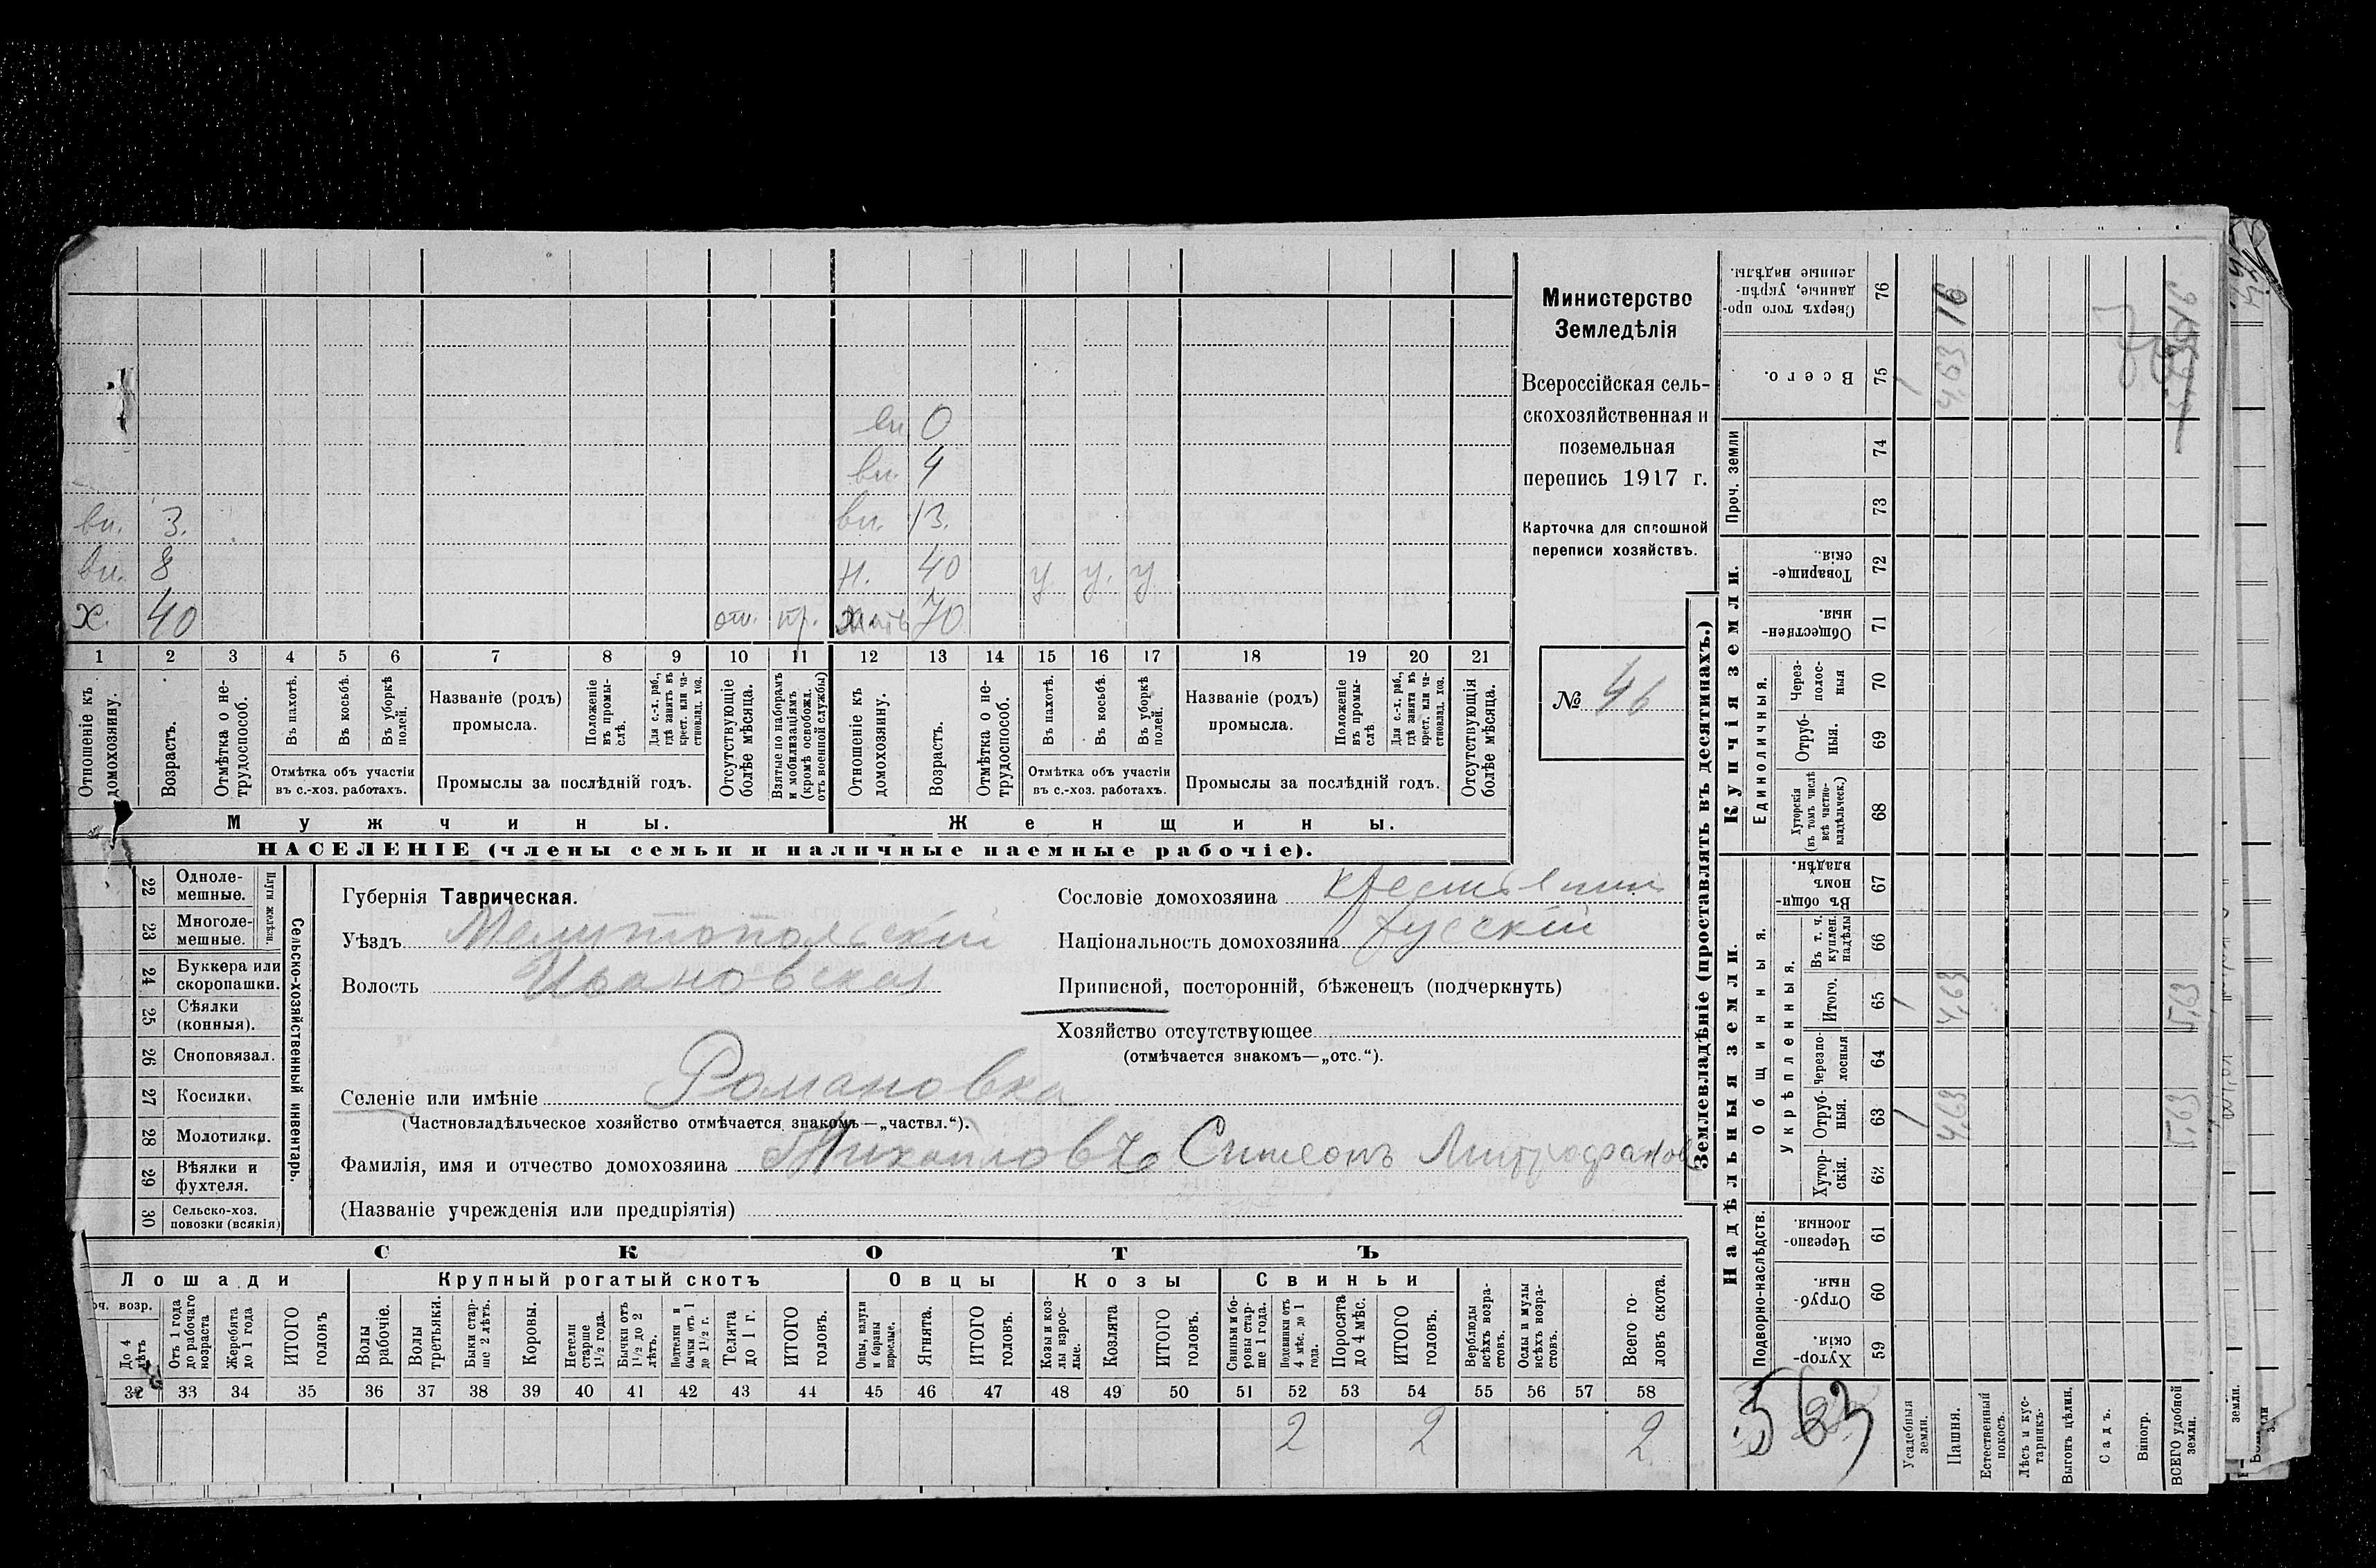 вн. 0
вн. 4
вн. 3. вн. 13.
вн. 8 н. 40 у у. у
х. 40 от. пр. мать 70
1 2 3 4 5 6 7 8 9 10 11 12 13 14 15 16 17 18 19 20 21
Отношеніе къ домохозяину.
Возрастъ.
Отмѣтка о не-трудоспособ.
Въ пахотѣ.
Въ косьбѣ.
Въ уборкѣ полей.
Отмѣтка объ участіи
въ с.-хоз. работахъ.
Названіе (родъ)
промысла.
Положеніе въ промы-слѣ.
Для с.-х. раб., гдѣ занятъ въ крест. или ча-стновлад. хоз.
Промыслы за послѣдній годъ.
Отсутствующіе болѣе мѣсяца.
Взятые по наборамъ и мобилизаціямъ (кромѣ освобожд. отъ военной службы)
Отношеніе къ домохозяину.
Возрастъ.
Отмѣтка о не-трудоспособ.
Въ пахотѣ.
Въ косьбѣ.
Въ уборкѣ полей.
Отмѣтка объ участіи
въ с.-хоз. работахъ.
Названіе (родъ)
промысла.
Положеніе въ промы-слѣ
Для с.-х. раб., гдѣ занята въ крест. или ча-стновлад. хоз.
Промыслы за послѣдній годъ.
Отсутствующія болѣе мѣсяца.
Мужчины. Женщины.
НАСЕЛЕНІЕ (члены семьи и наличные наемные рабочіе).
Министерство
Земледѣлія
Всероссійская сель-
скохозяйственная и
поземельная
перепись 1917 г.
Карточка для сплошной
переписи хозяйствъ.
№ 46
22 Одноле-мешные.
23 Многоле-мешные.
Плуги желѣзн.
24 Буккера или скоропашки.
25 Сѣялки (конныя).
26 Сноповязал.
27 Косилки.
28 Молотилки.
29 Вѣялки и фухтеля.
30 Сельско-хоз. повозки (всякія)
Сельско-хозяйственный инвентарь.
Губернія Таврическая.
Уѣздъ Мелитопольскій
Волость Ивановская
Сословіе домохозяина крестьянин
Національность домохозяина русскій
Приписной, посторонній, бѣженецъ (подчеркнуть)
Хозяйство отсутствующее
(отмѣчается знакомъ—„отс.“).
Селеніе или имѣніе Романовка
(Частновладѣльческое хозяйство отмѣчается знакомъ—„частвл.“).
Фамилія, имя и отчество домохозяина Михайловъ Симеонъ Митрофанов
(Названіе учрежденія или предпріятія)
СКОТЪ
Лошади Крупный рогатый скотъ Овцы Козы Свиньи
оч. возр.
До 4 лѣтъ
Отъ 1 года до рабочаго возраста
Жеребята до 1 года
ИТОГО головъ
Волы рабочіе.
Волы третьяки.
Быки стар-ше 2 лѣтъ.
Коровы.
Нетели старше 1½ года.
Бычки отъ 1½ до 2 лѣтъ.
Подтелки и бычки отъ 1 до 1½ г.
Телята до 1 г.
ИТОГО головъ.
Овцы, валухи и бараны взрослые.
Ягнята.
ИТОГО головъ.
Козы и коз-лы взрос-лые.
Козлята
ИТОГО головъ.
Свиньи и бо-ровы стар-ше 1 года.
Подсвинки отъ 4 мѣс. до 1 года.
Поросята до 4 мѣс.
ИТОГО головъ.
Верблюды всѣхъ возра-стовъ.
Ослы и мулы всѣхъ возра-стовъ.
Всего го-ловъ скота.
32 33 34 35 36 37 38 39 40 41 42 43 44 45 46 47 48 49 50 51 52 53 54 55 56 57 58
2 2 2
Землевладѣніе (проставлять въ десятинахъ.)
Надѣльныя земли. Купчія земли.
Подворно-наслѣдств.
Общинныя
Укрѣпленныя.
Единоличныя.
Проч. земли
Хутор-скія. 59
Отруб-ныя. 60
Черезпо-лосныя 61
Хутор-скія. 62
Отруб-ныя. 63
Черезпо-лосныя 64
Итого. 65
Въ т. ч. куплен. надѣлы 66
Въ общин-номъ владѣн. 67
Хуторскія (въ томъ числѣ всѣ частно-владѣльческ.) 68
Отруб-ныя. 69
Через-полос-ныя 70
Обществен-ныя. 71
Товарище-скія. 72
73
74
Всего. 75
Сверхъ того про-данные, укрѣп-ленные надѣлы. 76
563
Усадебныя земли. 1 1 1
Пашня. 4,63 4,63 4,63 16
Естественный покосъ.
Лѣсъ и кус-тарникъ.
Выгонъ цѣлин.
Садъ.
Виногр.
ВСЕГО удобной земли. 5,63 5,63 16
земли.